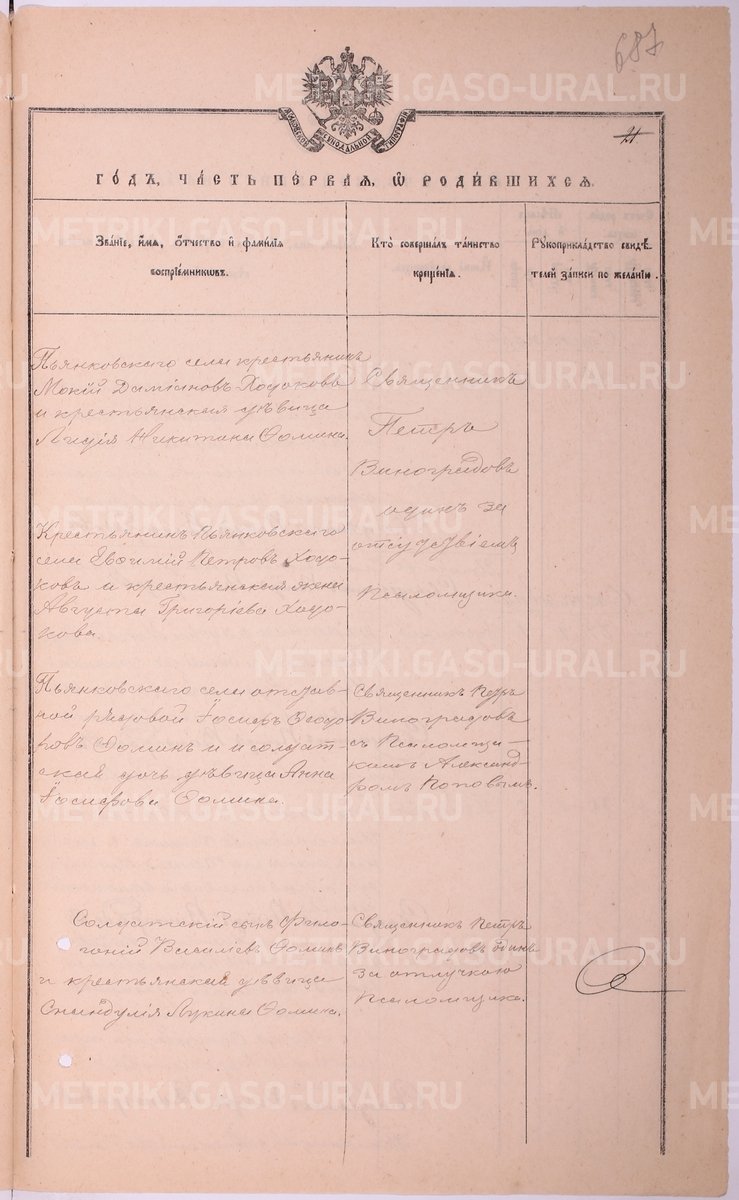 687
21
МОСКОВСКОЙ СѴНОДАЛЬНОЙ ТИПОГРАФІИ
ГОДЪ, ЧАСТЬ ПЕРВАЯ, Ѡ РОДИВШИХСЯ.
Званіе, имя, отчество и фамилія
воспріемниковъ.
Кто совершалъ таинство
крещенія.
Рукоприкладство свидѣ-
телей записи по желанію.
Пьянковскаго села крестьянинъ
Мокій Даміановъ Ходоковъ
и крестьянская дѣвица
Лидія Никитина Ѳомина.
Священникъ
Петръ
Виноградовъ
одинъ за
отсудствіемъ
Псаломщика.
Крестьянинъ Пьянковскаго
села Евѳимій Петровъ Ходо-
ковъ и крестьянская жена
Августа Григоріева Ходо-
кова.
Пьянковскаго села отстав-
ной рядовой Іосифъ Ѳеодо-
ровъ Ѳоминъ и солдат-
ская дочь дѣвица Анна
Іосифова Ѳомина.
Священникъ Петръ
Виноградовъ
съ Псаломщи-
комъ Александ-
ромъ Поповымъ.
Солдатскій сынъ Фило-
гоній Василіевъ Ѳоминъ
и крестьянская дѣвица
Лукина Ѳомина.
Священникъ Петръ
Виноградовъ одинъ
за отлучкою
Псаломщика.
METRIKI.GASO-URAL.RU